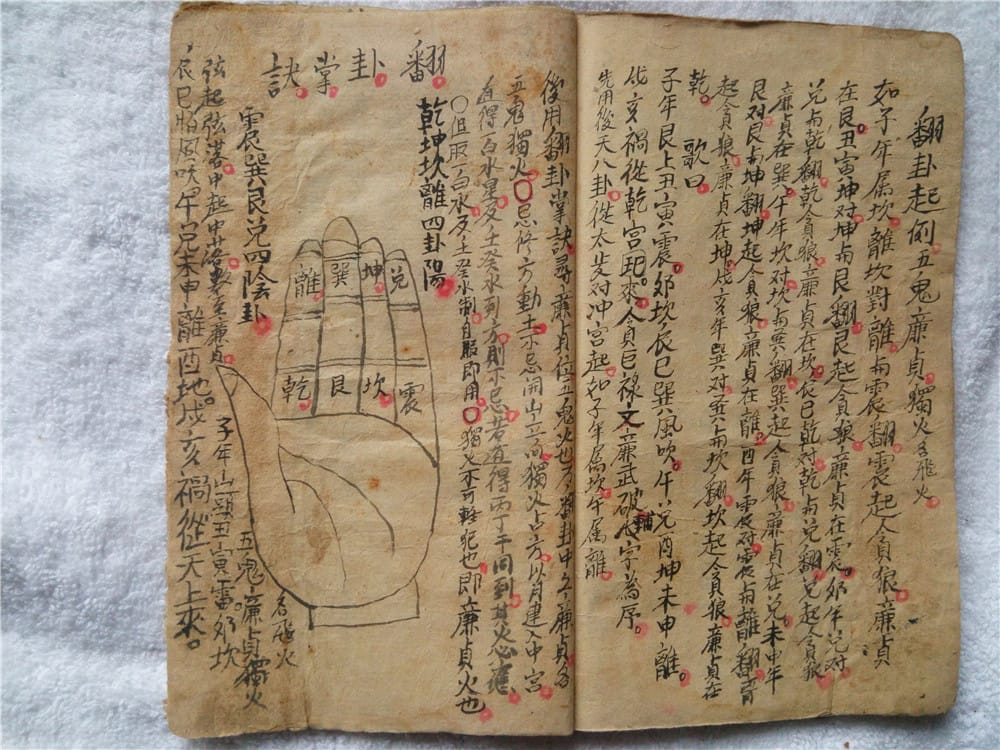 翻卦起例五鬼廉貞獨火名飛火
如子年属坎離坎對離与震翻震起貪狼廉貞
在艮丑寅坤对坤与艮翻艮起貪狼廉貞在震卯年兑对
兑与乾翻乾貪狼廉貞在坎辰巳乾对乾与兑翻兑起貪狼
廉貞在巽午年坎对坎与巽翻巽起貪狼廉貞在兑未申年
艮对艮与坤翻坤起貪狼廉貞在離酉年震对震与離翻離
起貪狼廉貞在坤戌亥年巽对巽与坎翻坎起貪狼廉貞在
乾
歌曰
子年艮上丑寅震卯坎辰巳巽風吹午兑酉坤未申離
戌亥禍從乾宫起來貪巨禄文廉武破輔八字為序
先用後天八卦從太岁对冲宫起如子年属坎午属離
後用翻卦掌訣尋廉貞位五鬼火也 翻卦中之廉貞名
五鬼獨火〇忌修方動土不忌開山立向獨火占方以月建入中宫
道得白水星及壬癸水到方則不忌若道得丙丁干同到其火必應
〇但取一白水及壬癸水制自服即用〇獨火不可輕犯也即廉貞火也
翻卦掌訣
乾坤坎離四卦陽
震巽艮兑四陰卦
離
巽
坤
兑
乾
艮
坎
震
弦起弦落中起中落數至廉貞
五鬼廉貞獨火
名飛火
子年山頭丑寅雷卯坎
辰巳怕風吹午兑未申離酉地戌亥禍從天上來